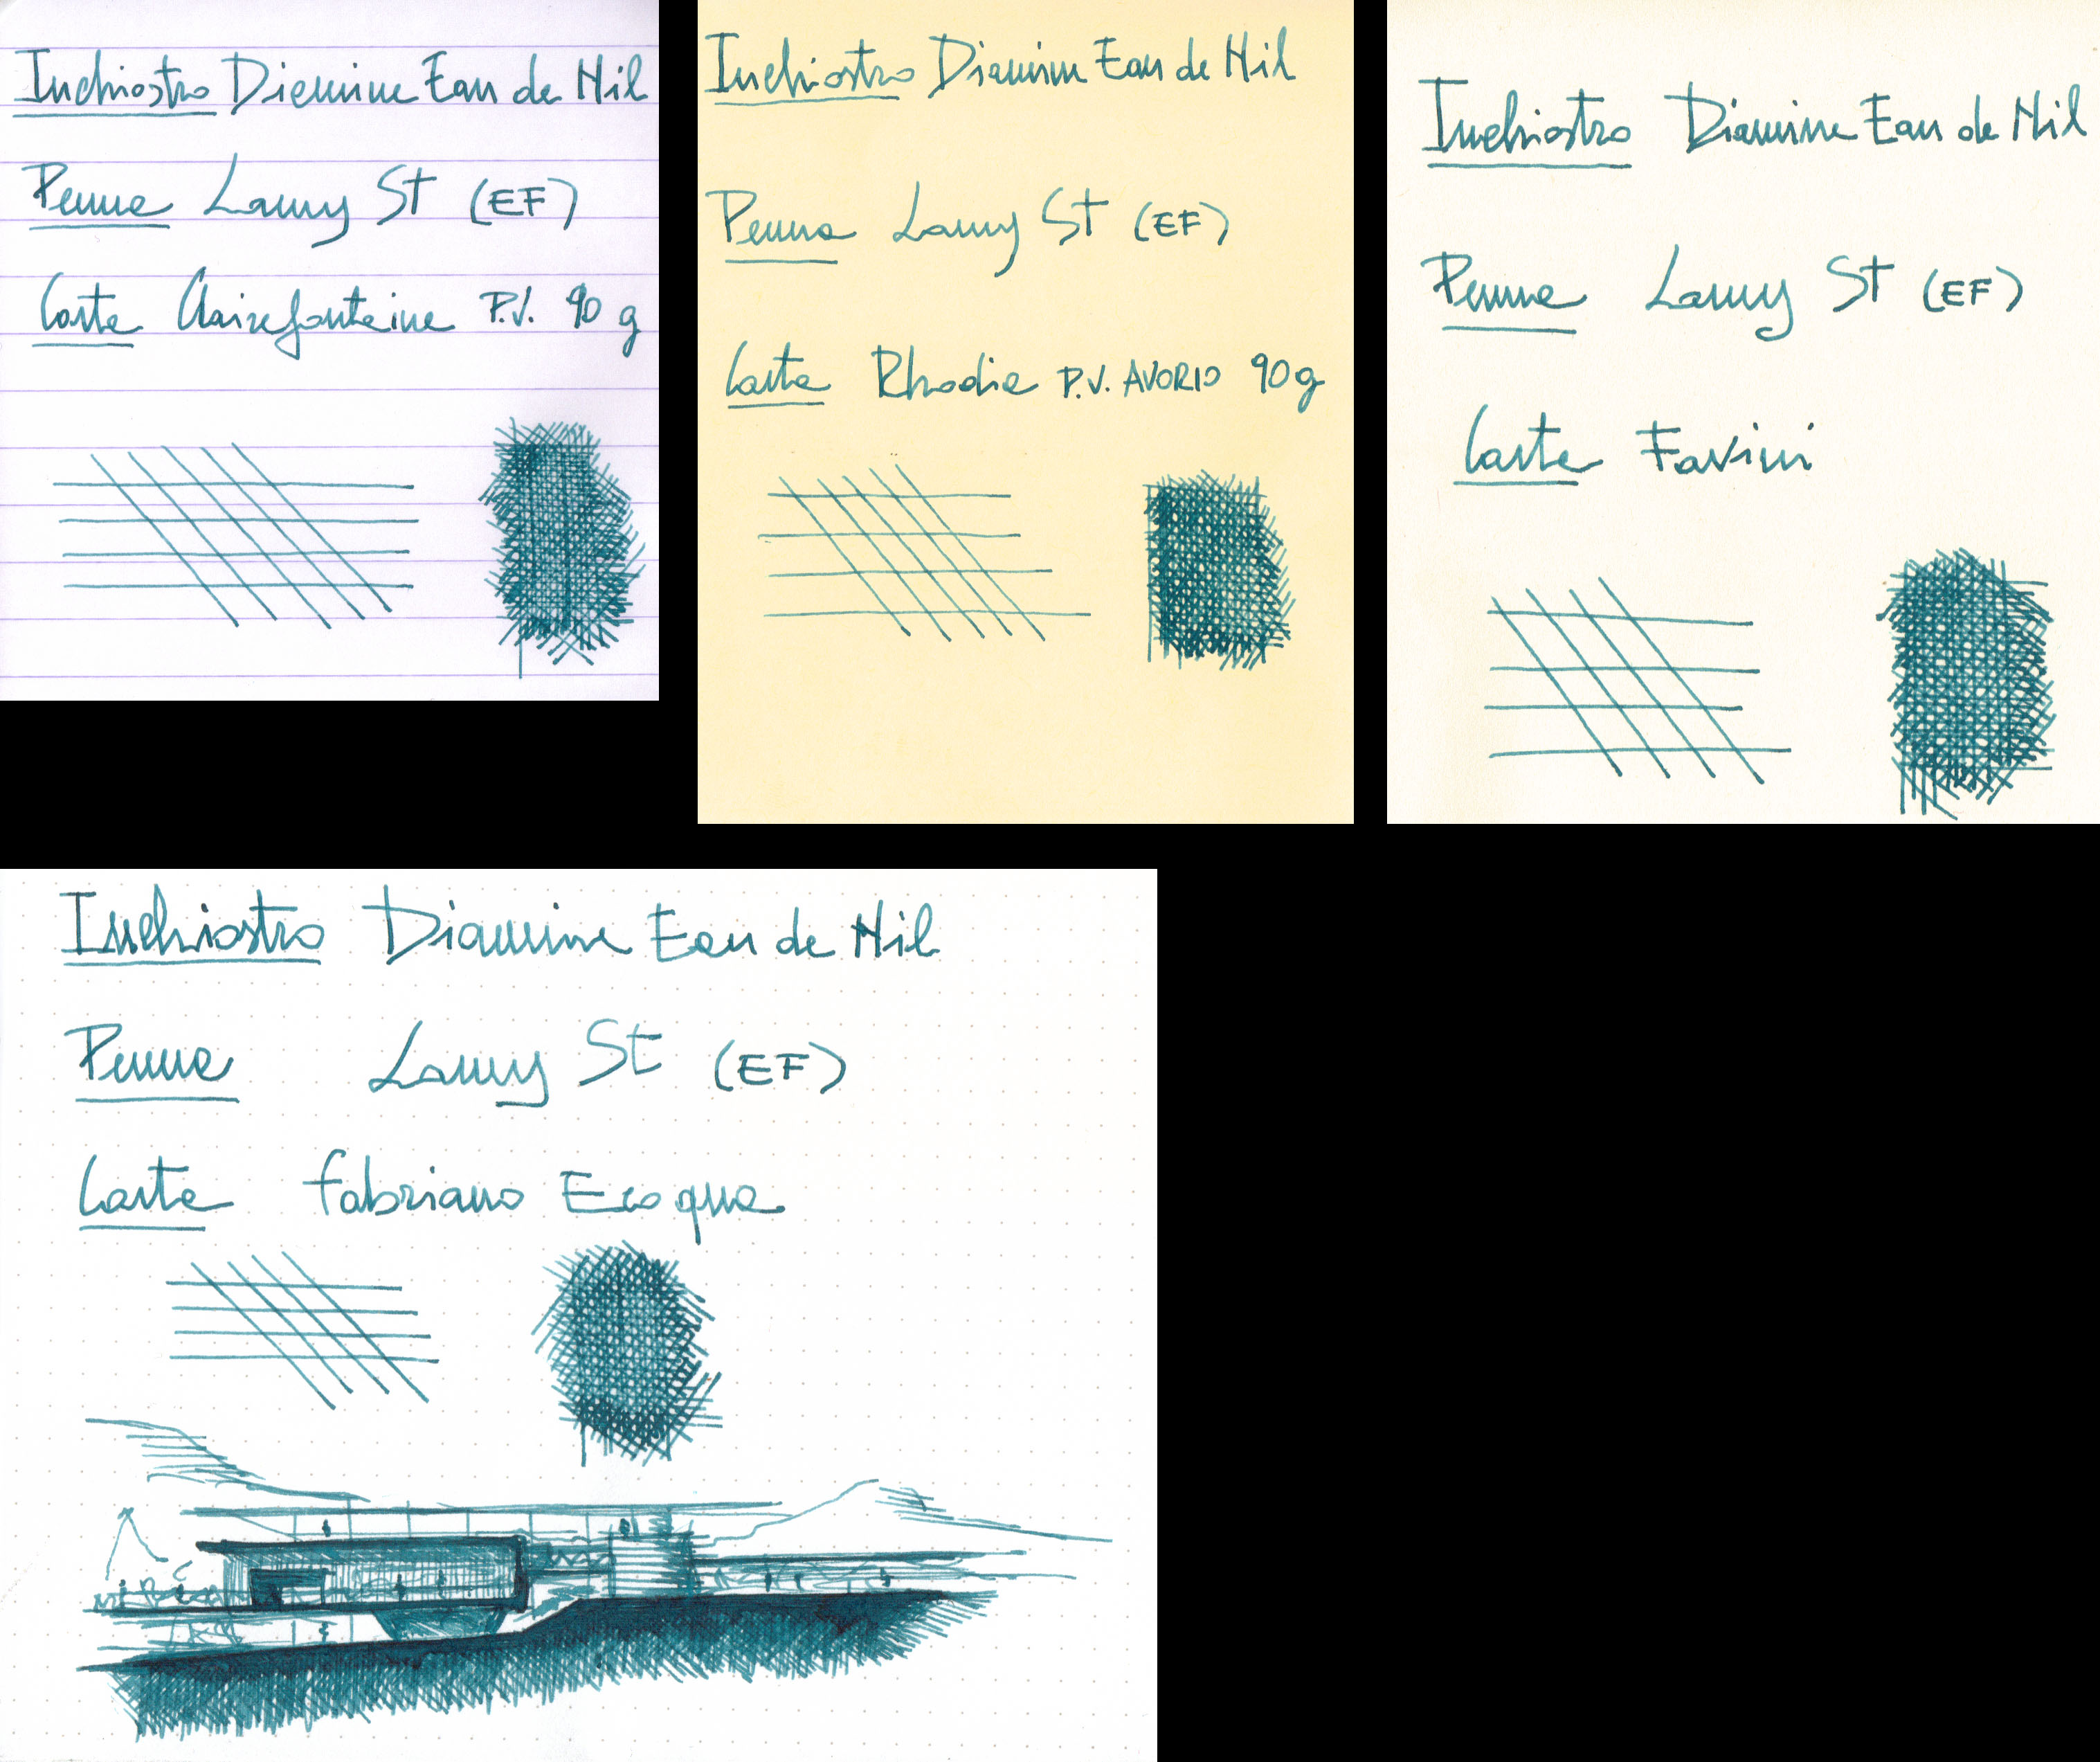 Inchiostro Diamine Eau de Nil
Penna Lamy St (EF)
Carta Clairefontaine P.V. 90 g
Inchiostro Diamine Eau de Nil
Penna Lamy St (EF)
Carta Rhodia P.V. AVORIO 90g
Inchiostro Diamine Eau de Nil
Penna Lamy St (EF)
Carta Favini
Inchiostro Diamine Eau de Nil
Penna Lamy St (EF)
Carta Fabriano Ecoqua